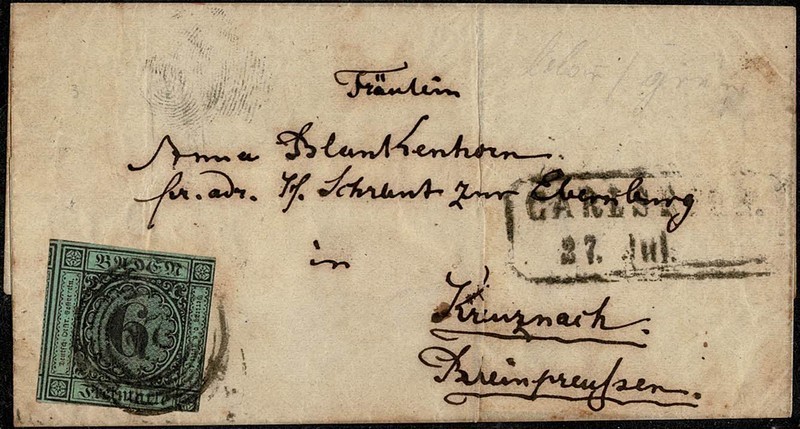 Fräulein
Anna Blankenhorn.
pr. adr. Hr. Schrant zur Ebernburg
in
Kreuznach.
Rheinpreussen.
CARLSRUHE.
27. Jul.
BADEN
6
Freimarke